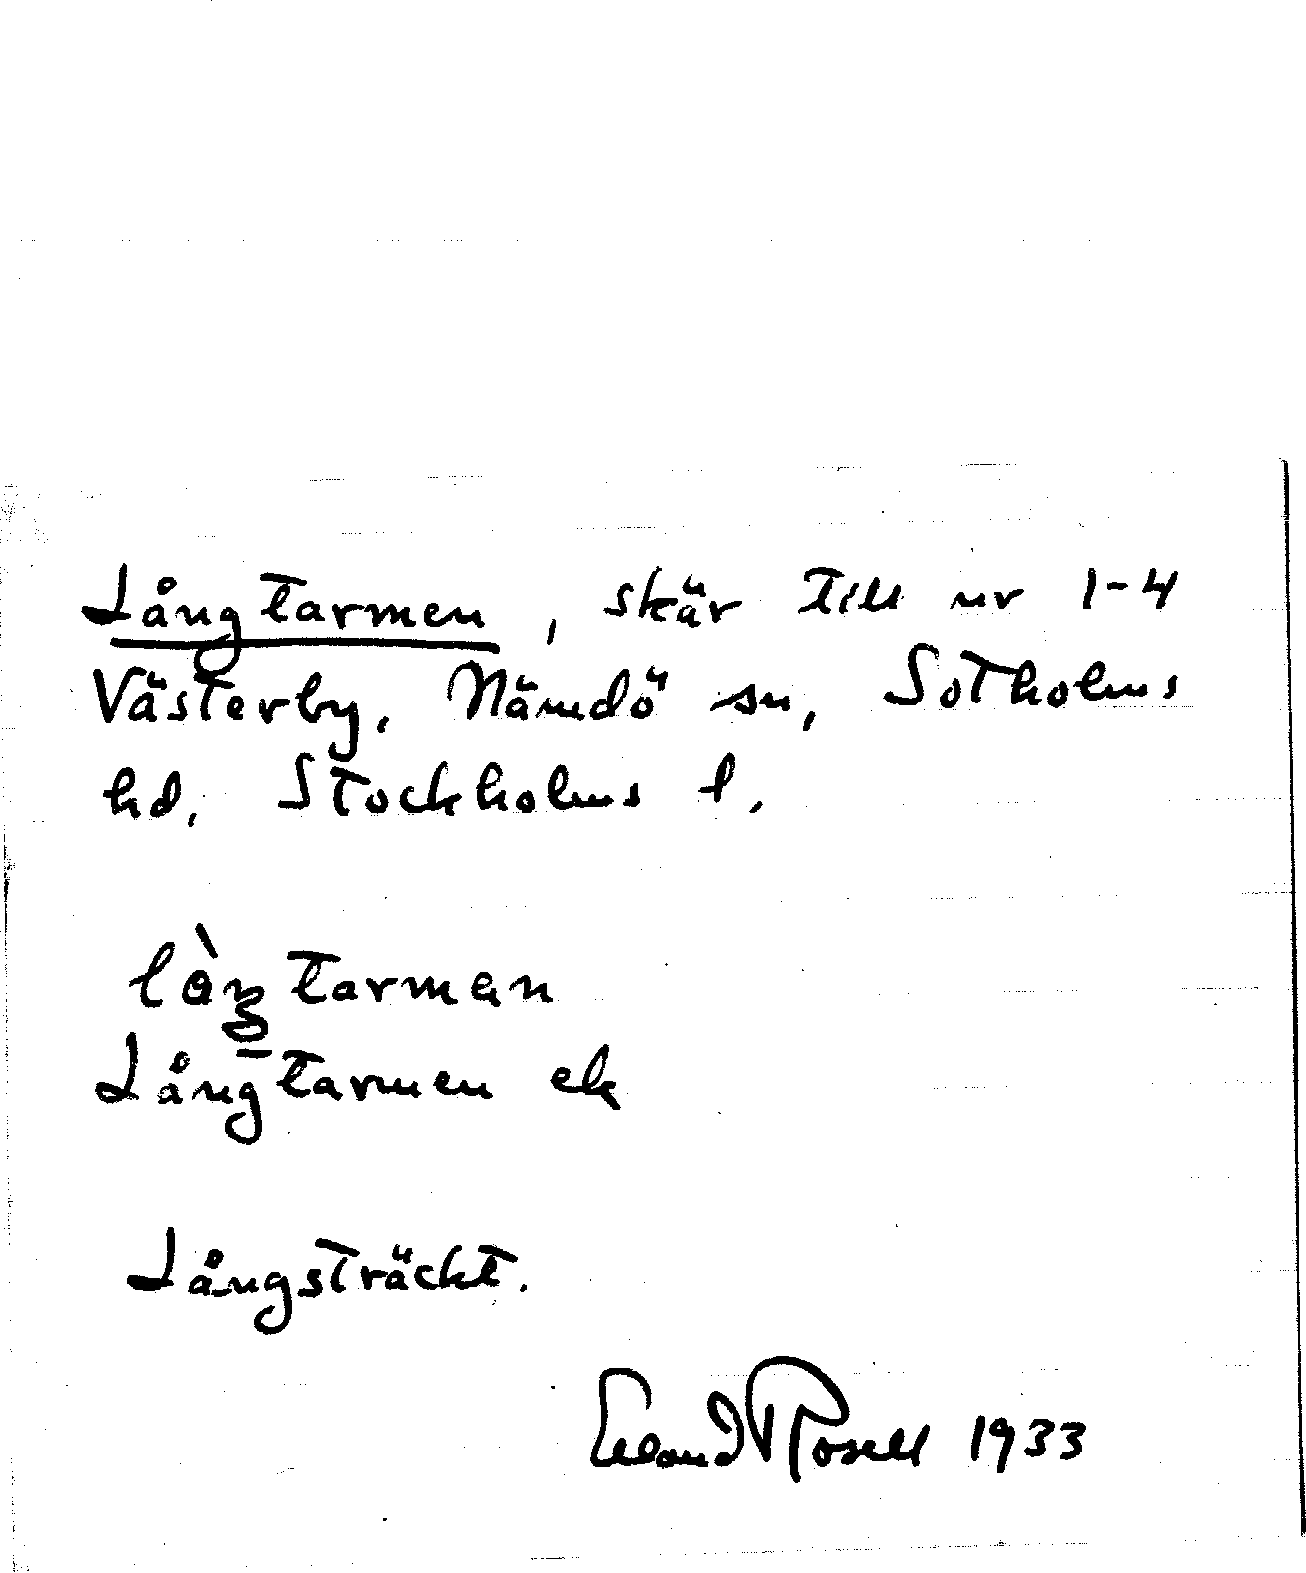 Långtarmen, skär till nr 1-4
Västerby, Nämdö sn, Sotholms
hd, Stockholms l.
lòŋtarmən
Långtarmen ek
Långsträckt.
Erland Rosell 1933